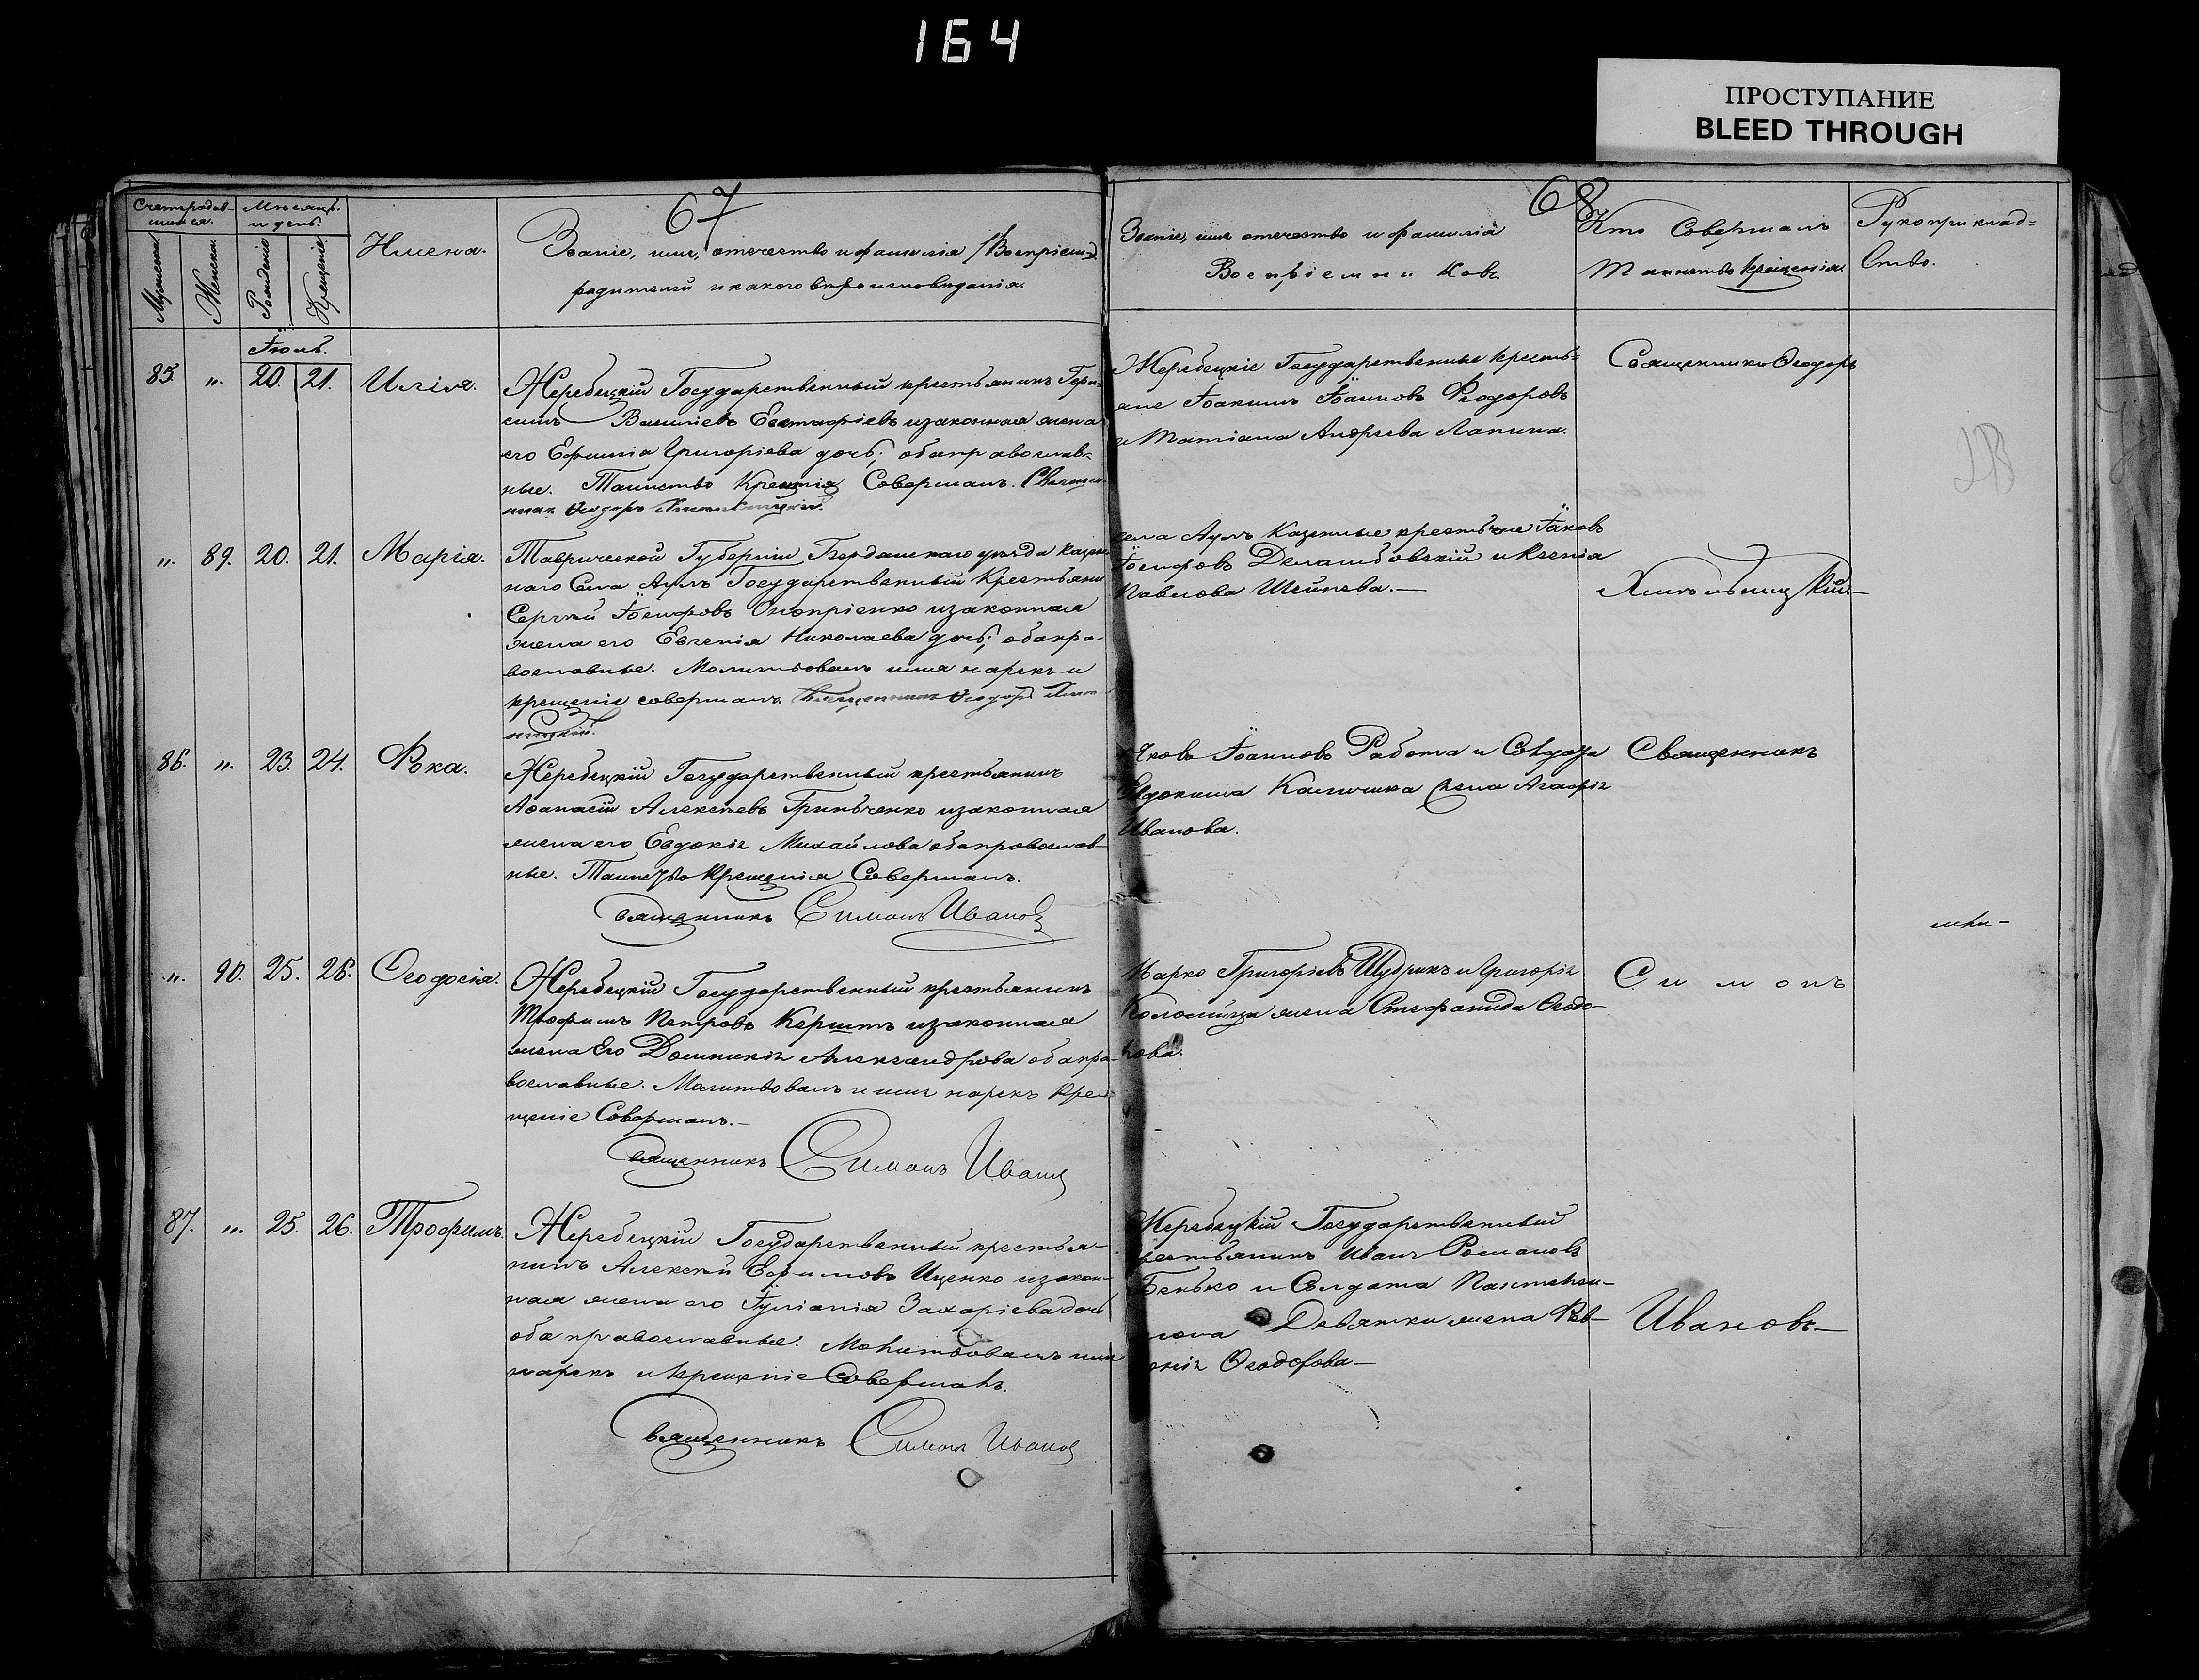 164
ПРОСТУПАНИЕ
BLEED THROUGH
67
68
Счетъ родив-
шихся.
Мѣсяцъ.
и день.
Мужескаго
Женска
Рожденіе
Крещеніе
Имена.
Званіе, имя, отечество и фамилія
родителей и какого вѣроисповеданія.
Званіе, имя отечество и фамилія
Воспріемниковъ.
Кто Совершалъ
Таинство крещенія
Рукоприклад=
Ство.
Іюль.
85. „. 20. 21. Илія.
Жеребецкій Государственный крестьянинъ Гера-
симъ Васильевъ Евстафіевъ и законная жена
его Ефимія Григоріева дочь; оба православ-
ные. Таинство Крещенія Совершалъ. Священ-
никъ Ѳеодоръ
Жеребецкіе Государственные кресть=
яне Іоакимъ Іоанновъ Ѳеодоровъ
и Татіана Андреева Лапина.
Священникъ Ѳеодоръ
„. 89. 20. 21. Марія.
Таврической Губерніи Бердянскаго уѣзда казен
наго Села Аулъ Государственный Крестьянин
Сергѣй Іосифовъ Оноприенко и законная
жена его Евгенія Николаева дочь; оба пра-
вославные. Молитвовалъ имя нарекъ и
крещеніе совершалъ Священникъ Ѳеодоръ
села Аулъ Казенные крестьяне Іаковъ
Іосифовъ и Ксенія
Павлова Шейнева.—
86. „. 23. 24. Ѳока.
Жеребецкій Государственный крестьянинъ
Аѳанасій Алексѣевъ Гриньченко и законная
жена его Евдокія Михайлова оба православ-
ные. Таинство Крещенія Совершалъ.
Священникъ Симонъ Ивановъ
Яковъ Іоанновъ Работа и Солдата
Евдокима Калачика жена Агафія
Иванова.
Священникъ
„. 90. 25. 26. Ѳеодосія.
Жеребецкій Государственный крестьянинъ
Трофимъ Петровъ и законная
жена Его Домникія Александрова оба пра-
вославные. Молитвовалъ и имя нарекъ Кре-
щеніе Совершалъ.—
Священникъ Симонъ Ивановъ
Марко Григоріевъ Щудрикъ и Григорія
Коломійца жена Стефанида Ѳеодо-
рова.
Симонъ
87. „. 25. 26. Трофимъ.
Жеребецкій Государственный крестья-
нинъ Алексѣй Ефимовъ Иценко и закон-
ная жена его Іуліанія Захаріева дочь
оба православные. Молитвовалъ имя
нарекъ и крещеніе Совершалъ.
Священникъ Симонъ Ивановъ
Жеребецкій Государственный
крестьянинъ Иванъ Романовъ
Бенько и Солдата Пантелеи-
мона Девятки жена Фев-
ронія Ѳеодорова—
Ивановъ—